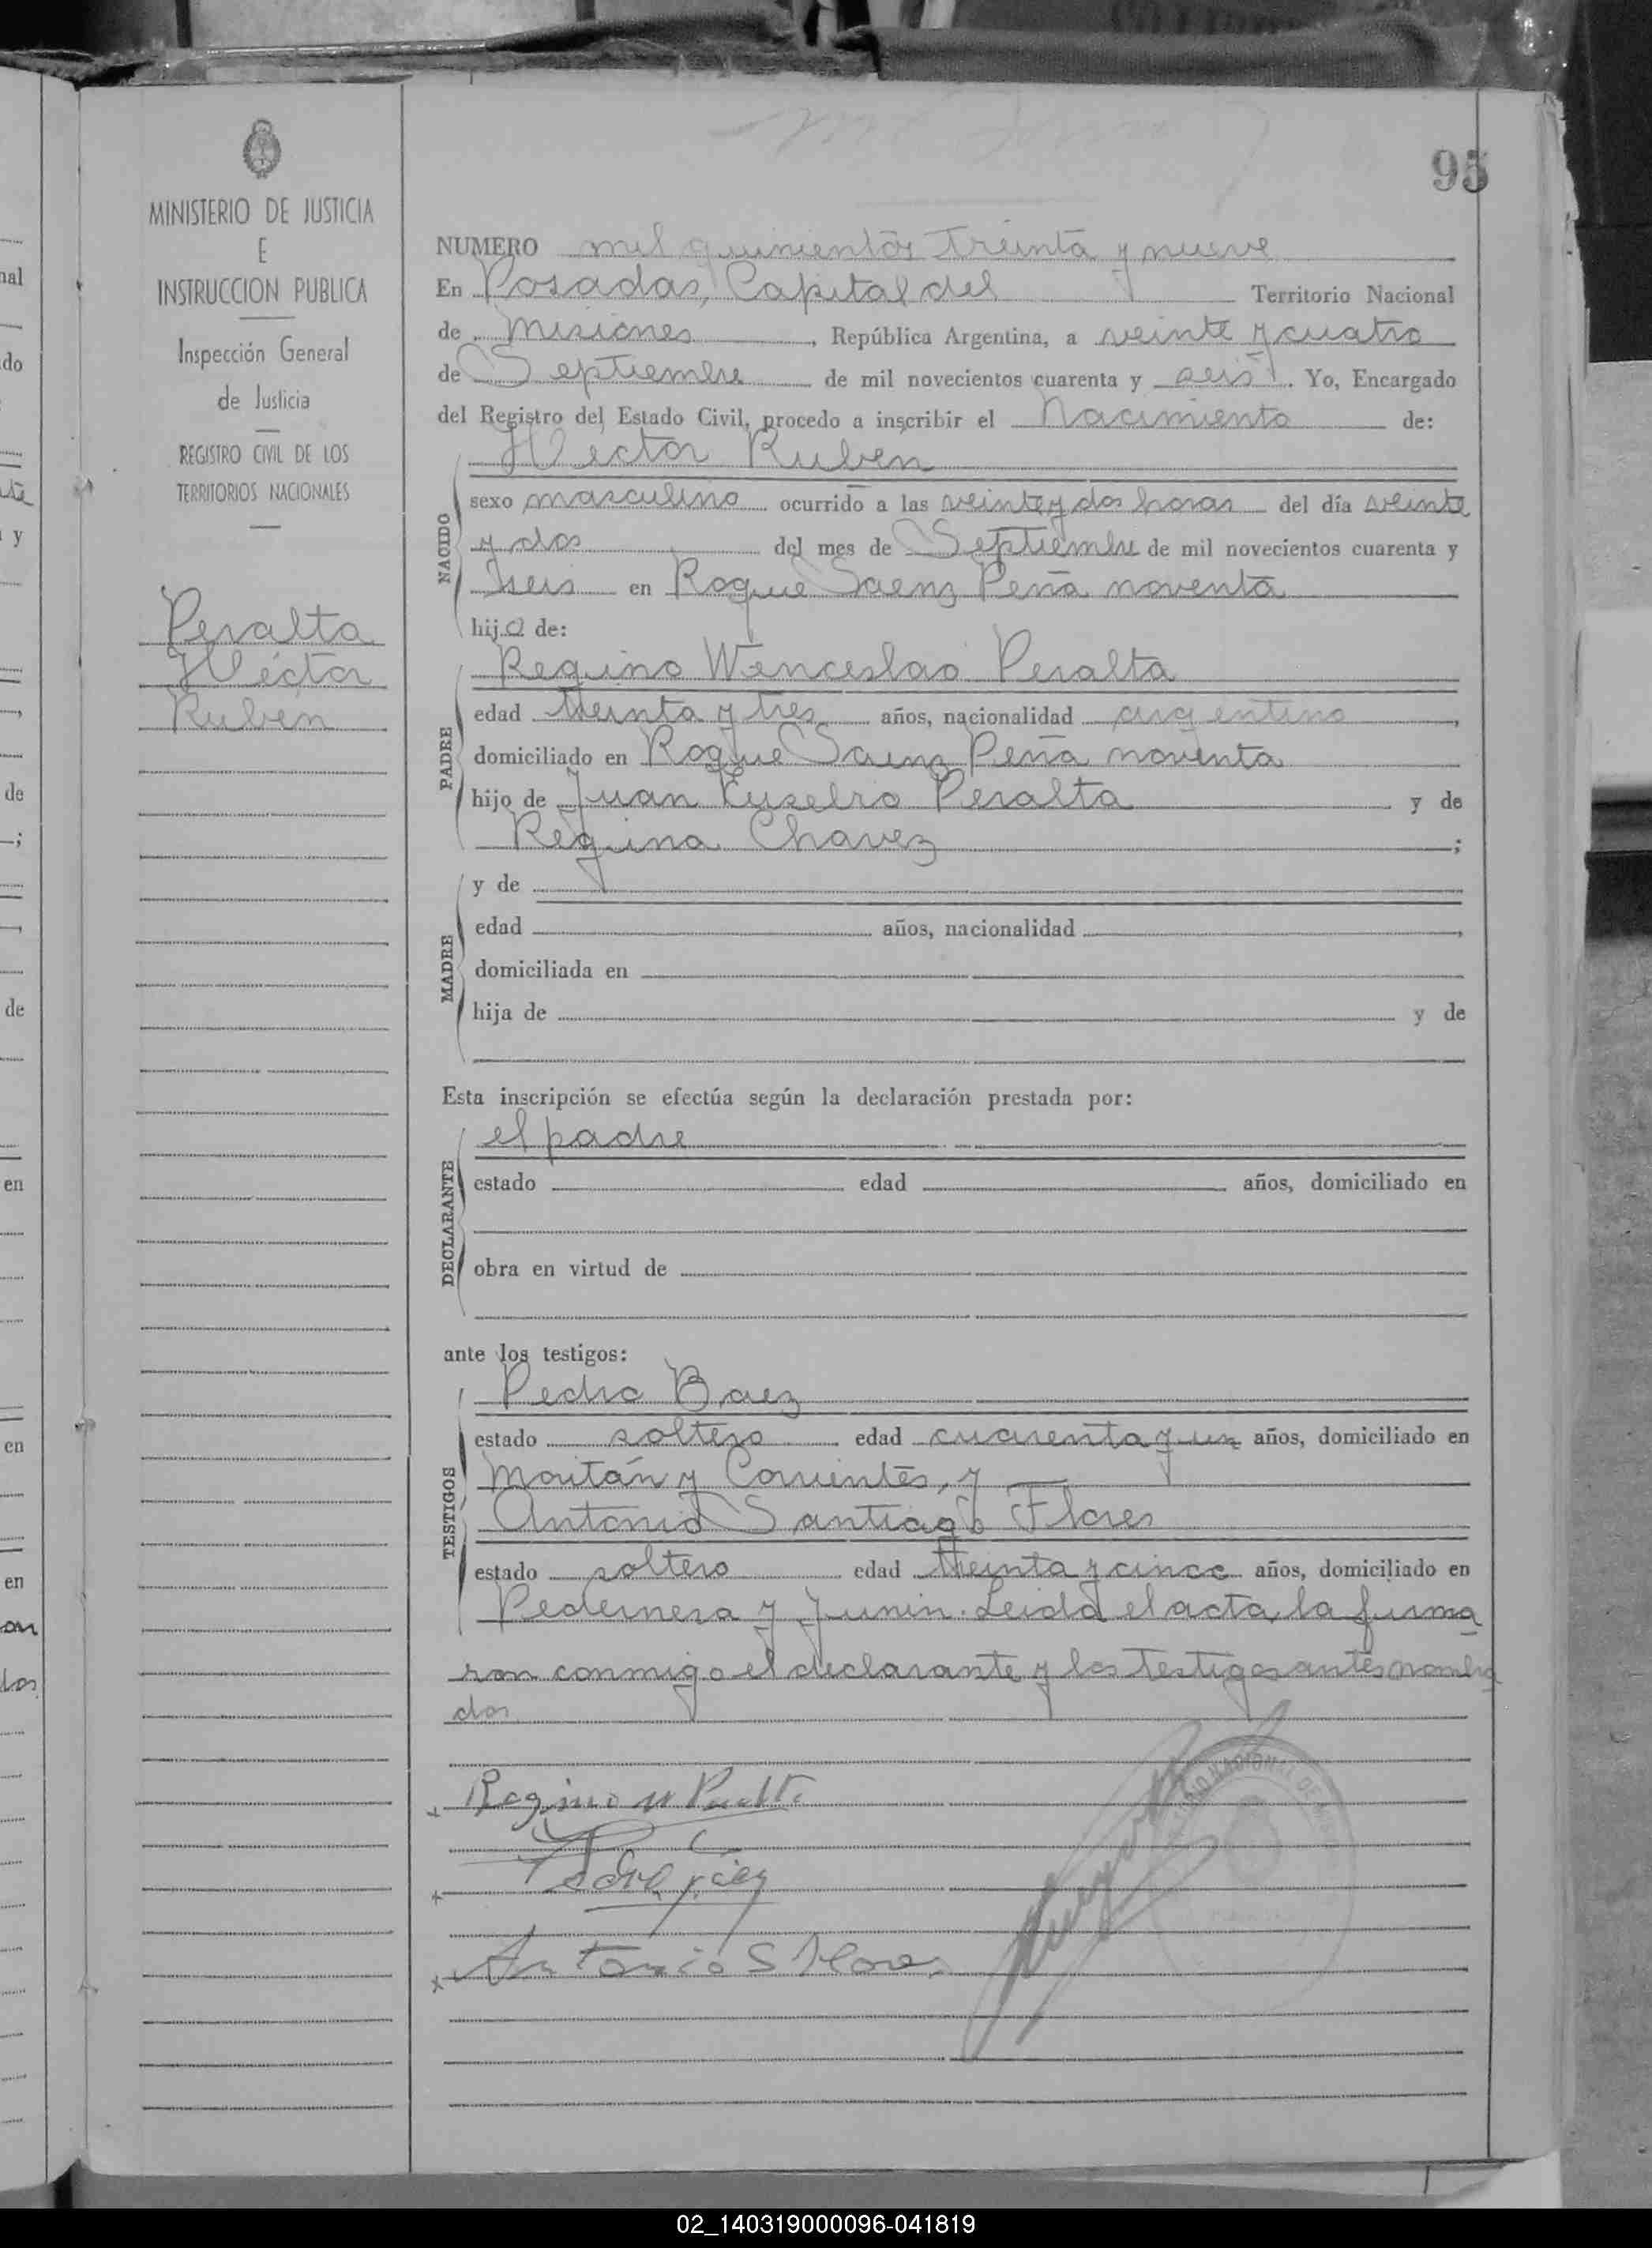 95
MINISTERIO DE JUSTICIA
E
INSTRUCCION PUBLICA
Inspección General
de Justicia
REGISTRO CIVIL DE LOS
TERRITORIOS NACIONALES
Peralta
Héctor
Rubén
NUMERO mil quinientos treinta y nueve
En Posadas, Capital del Territorio Nacional
de Misiones, República Argentina, a veinte y cuatro
de Septiembre de mil novecientos cuarenta y seis. Yo, Encargado
del Registro del Estado Civil, procedo a inscribir el Nacimiento de:
Héctor Ruben
NACIDO
sexo masculino ocurrido a las veinte y dos horas del día veinte
y dos del mes de Septiembre de mil novecientos cuarenta y
seis en Roque Saenz Peña noventa
hijo de:
Regino Wenceslao Peralta
PADRE
edad treinta y tres años, nacionalidad argentino,
domiciliado en Roque Saenz Peña noventa
hijo de Juan Eusebio Peralta y de
Regina Chavez;
MADRE
y de
edad años, nacionalidad,
domiciliada en
hija de y de
Esta inscripción se efectúa según la declaración prestada por:
DECLARANTE
el padre
estado edad años, domiciliado en
obra en virtud de
ante los testigos:
TESTIGOS
Pedro Baez
estado soltero edad cuarenta y un años, domiciliado en
y Corrientes, y
Antonio Santiago Flores
estado soltero edad treinta y cinco años, domiciliado en
Pedernera y Junin. Leida el acta, la firma
ron conmigo el declarante y los testigos antes nombra
dos
Regino W Peralta
Pedro Báez
Antonio S Flores
02_140319000096-041819